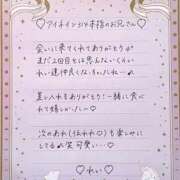 ♡アイネイン314本指のお兄さん♡
会いに来てくれてありがとう
まだ2回目とは思えないくらい
れい達仲良くなったよね〜♪
差し入れもありがとう！一緒に食べ
れて嬉しかった〜♡
次のあれ(伝われ♡)も楽しみに
してる♪笑可愛い…♡
♡れい♡